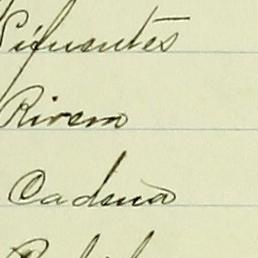 Cifuentes
Rivera
Cadena